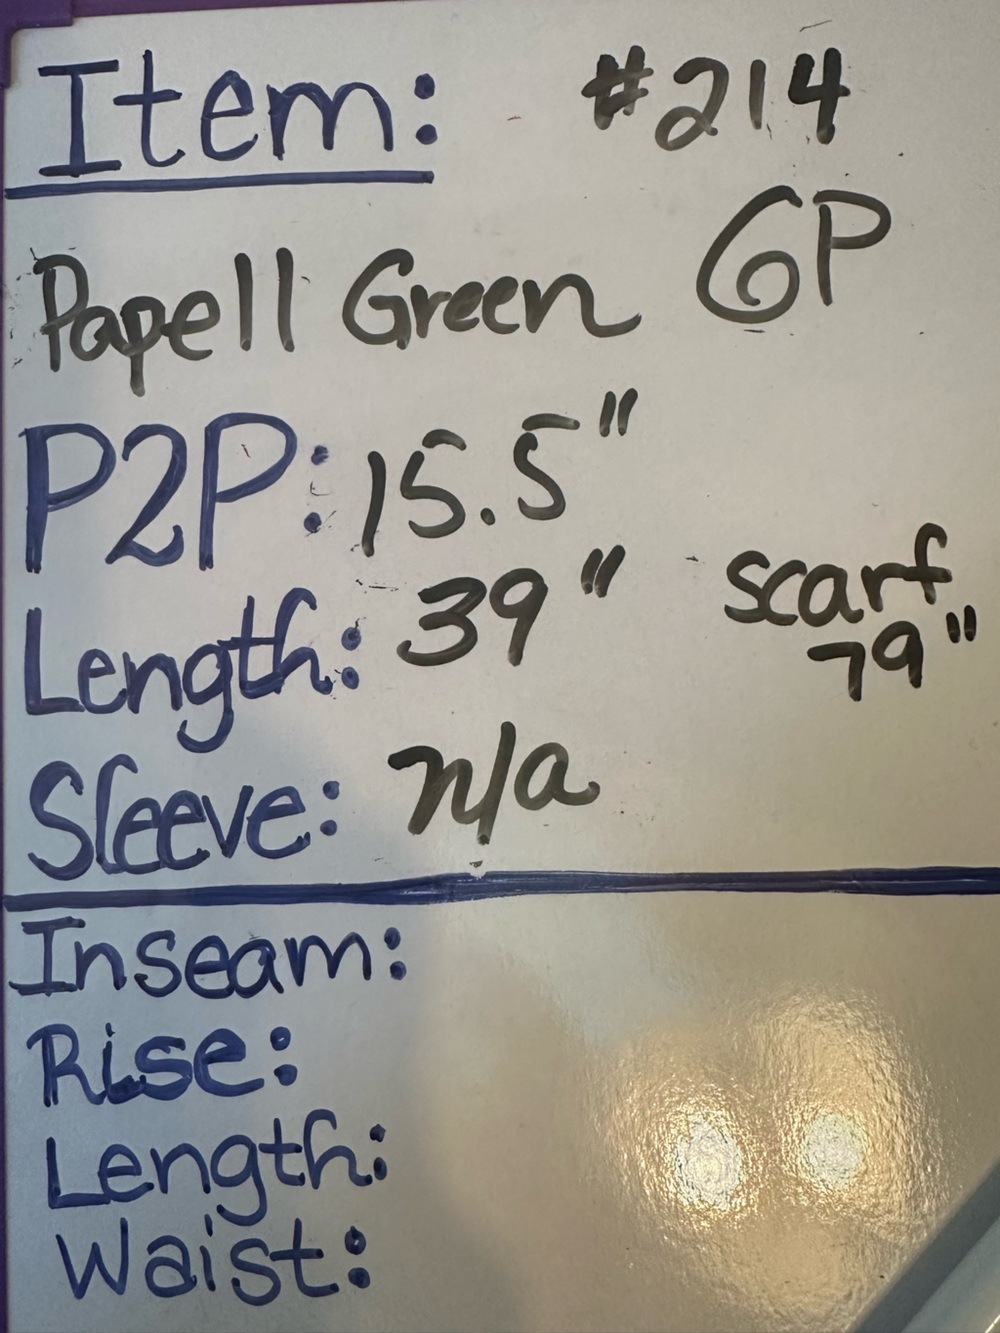 Item: #214
Papell Green 6P
P2P: 15.5"
Length: 39" scarf
79"
Sleeve: n/a
Inseam:
Rise:
Length:
Waist: